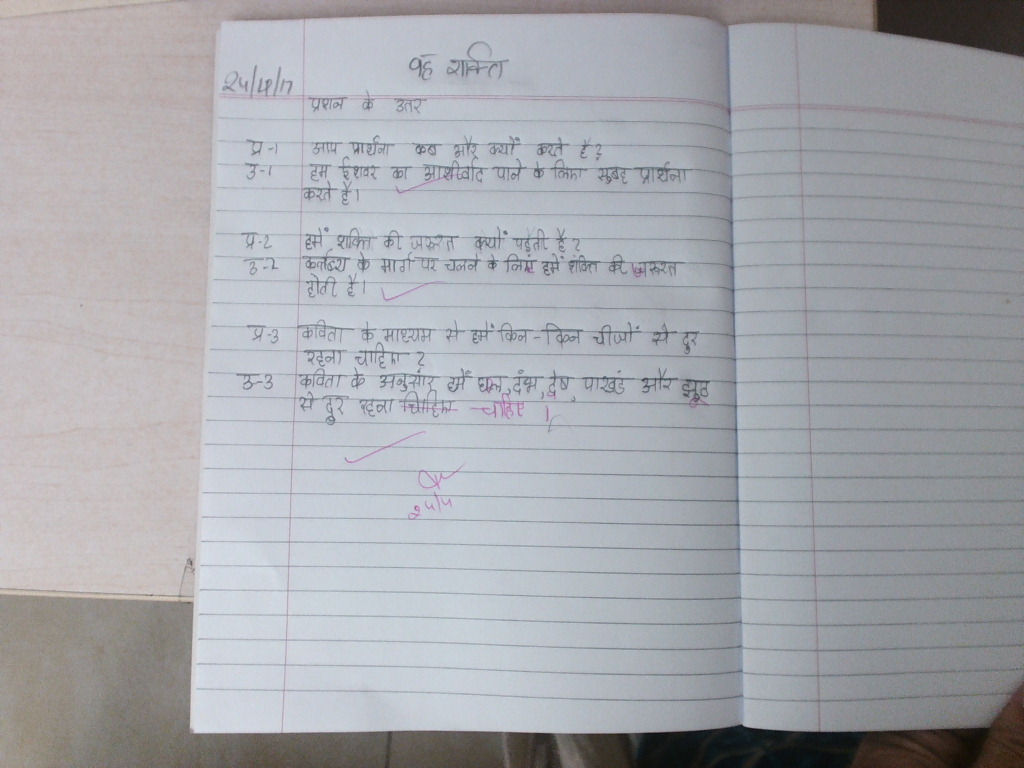 वह शक्ति
24/4/17
प्रशन के उतर
प्र-1 आप प्रार्थना कब और क्यों करते है?
उ-1 हम ईशवर का आशीर्वाद पाने के लिए सुबह प्रार्थना
करते है।
प्र-2 हमें शक्ति की जरुरत क्यों पड़ती है?
उ-2 कर्तव्य के मार्ग पर चलने के लिए हमें शक्ति की जरुरत
होती है।
प्र-3 कविता के माध्यम से हमें किन-किन चीजों से दूर
रहना चाहिए?
उ-3 कविता के अनुसार हमें छल, दंभ, द्वेष, पाखंड और झूठ
से दूर रहना चाहिए चाहिए।